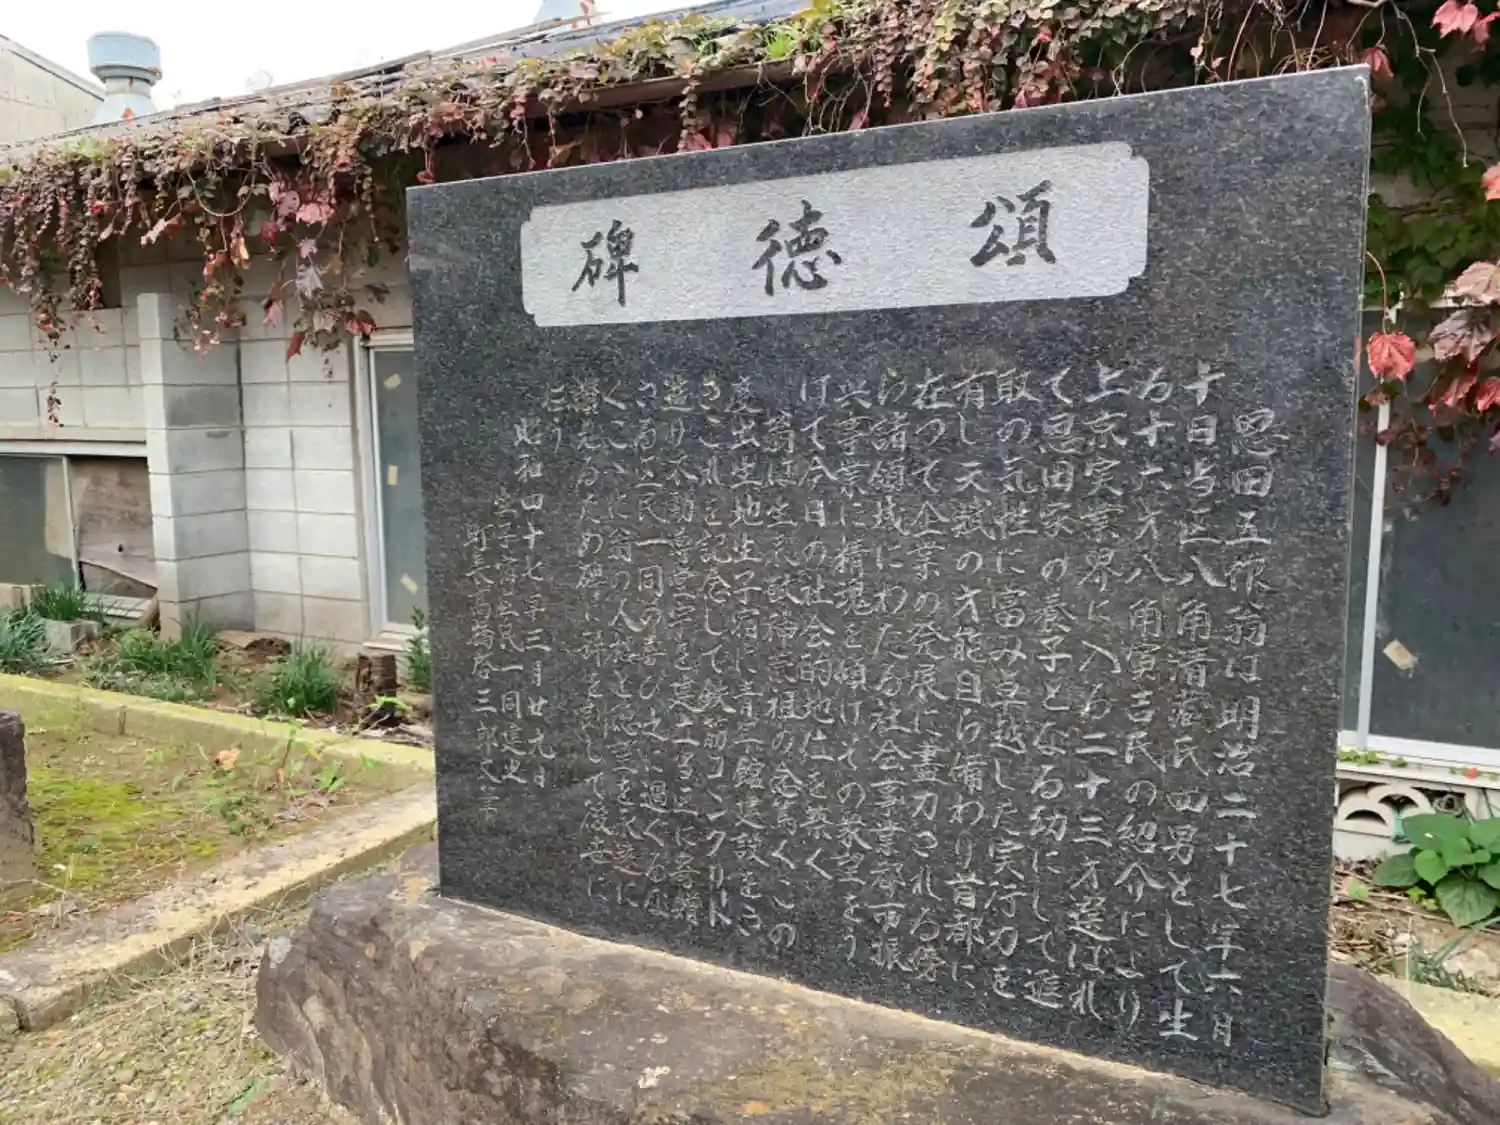 頌徳碑
恩田五郎翁は明治二十七年六月
十日当区八角清蔵氏四男として生
る十六才八角寅吉氏の紹介により
上京実業界に入る二十三才選ばれ
て恩田家の養子となる幼にして進
取の気性に富み卓越した実行力を
有し天賦の才能自ら備わり首都に
在つて企業の発展に盡力される傍
ら諸領域にわたる社会事業都市振
興事業に精魂を傾けその衆望をう
けて今日の社会的地位を築く
翁は生礼敬神崇祖の念篤くこの
度出生地生子宿に青年館建設をさ
さこれを記念して鉄筋コンクリート
造り不動尊堂宇を建立する
区民一同の喜び之に過ぐるな
くこゝに翁の人格と徳望を永遠に
讃えるため碑に碑を刻して後世に
昭和四十七年三月廿九日
生子宿区民一同建之
町長 三郎文